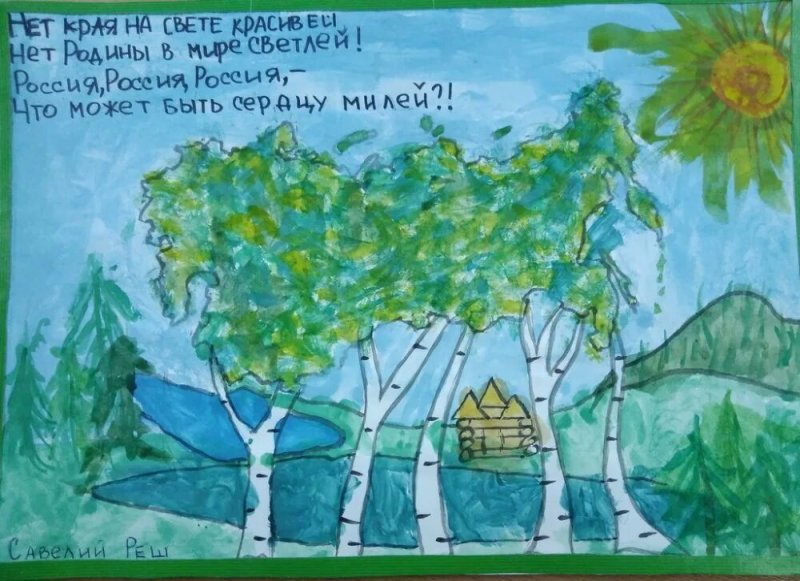 Нет края на свете красивей,
Нет Родины в мире светлей!
Россия, Россия, Россия,–
Что может быть сердцу милей?!
Савелий Реш